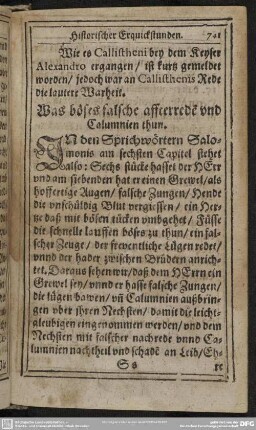 Historischer Erquickstunden. 701
Wie es Callistheni bey dem Keyser
Alexandro ergangen / ist kurtz gemeldet
worden / jedoch war an Callisthenis Rede
die lautere Warheit.
Was böses falsche affterredē vnd
Calumnien thun.
IN den Sprichwörtern Salo-
monis am sechsten Capitel stehet
also: Sechs stücke hasset der HErr
vnd am siebenden hat er einen Grewel / als
hoffertige Augen / falsche Zungen / Hende
die vnschüldig Blut vergiessen / ein Her-
tze daß mit bösen tücken vmbgehet / Füsse
die schnelle lauffen böses zu thun / ein fal-
scher Zeuge / der freventliche Lügen redet /
vnnd der hader zwischen Brüdern anrich-
tet. Daraus sehen wir / daß dem HErrn ein
Grewel sey / vnnd er hasse falsche Zungen /
die lügen bawen / vñ Calumnien außbrin-
gen vber ihren Nechsten / damit die leicht-
gleubigen eingenommen werden / vnd dem
Nechsten mit falscher nachrede vnnd Ca-
lumnien nachtheil vnd schadē an Leib / Eh-
Ss re